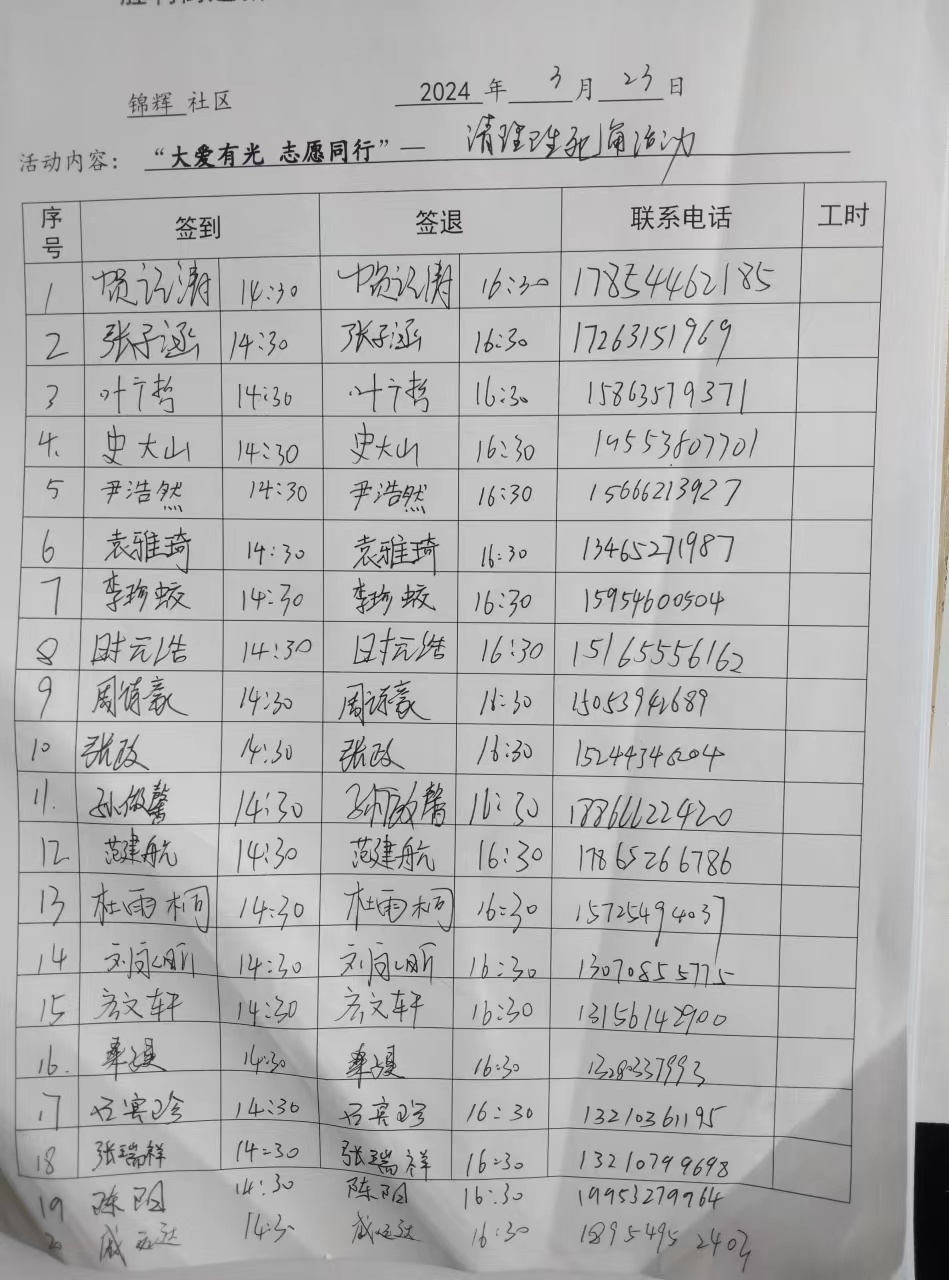 锦辉 社区 2024 年 3 月 23 日
活动内容: “大爱有光 志愿同行”— 清理卫生死角活动
序号 签到 签退 联系电话 工时
1 14:30 16:30 17854462185
2 张子涵 14:30 张子涵 16:30 17263151969
3 叶广哲 14:30 叶广哲 16:30 15863579371
4. 史大山 14:30 史大山 16:30 19553807701
5 尹浩然 14:30 尹浩然 16:30 15666213927
6 袁雅琦 14:30 袁雅琦 16:30 13465271987
7 李珍蛟 14:30 李珍蛟 16:30 15954600504
8 时元浩 14:30 时元浩 16:30 15165556162
9 14:30 16:30 15053942689
10 张政 14:30 张政 16:30 15244346204
11. 14:30 16:30 18866122420
12 范建航 14:30 范建航 16:30 17865266786
13 杜雨桐 14:30 杜雨桐 16:30 15725494037
14 14:30 16:30 13070855775
15 14:30 16:30 13156142900
16. 14:30 16:30
17 14:30 16:30 13210361195
18 张瑞祥 14:30 张瑞祥 16:30 13210799698
19 陈阳 14:30 陈阳 16:30 19953279964
20 14:30 16:30 18954952403